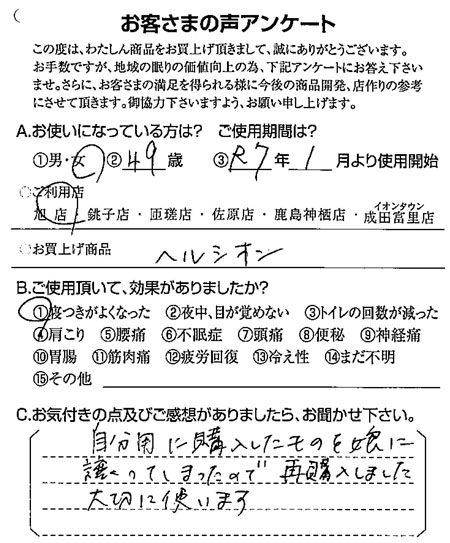 お客さまの声アンケート
この度は、わたしん商品をお買上げ頂きまして、誠にありがとうございます。
お手数ですが、地域の眠りの価値向上の為、下記アンケートにお答え下さい
ませ。さらに、お客さまの満足を得られる様に今後の商品開発、店作りの参考
にさせて頂きます。御協力下さいますよう、お願い申し上げます。
A.お使いになっている方は? ご使用期間は?
①男・女 ②49歳 ③R7年1月より使用開始
○ご利用店
旭店・銚子店・匝瑳店・佐原店・鹿島神栖店・イオンタウン成田富里店
○お買上げ商品 ヘルシオン
B.ご使用頂いて、効果がありましたか?
①寝つきがよくなった ②夜中、目が覚めない ③トイレの回数が減った
④肩こり ⑤腰痛 ⑥不眠症 ⑦頭痛 ⑧便秘 ⑨神経痛
⑩胃腸 ⑪筋肉痛 ⑫疲労回復 ⑬冷え性 ⑭まだ不明
⑮その他
C.お気付きの点及びご感想がありましたら、お聞かせ下さい。
自分用に購入したものを娘に
譲ってしまったので再購入しました
大切に使います